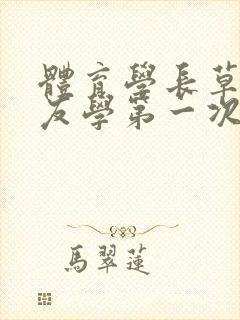 體育學長草
友學第一次
馬翠蓮